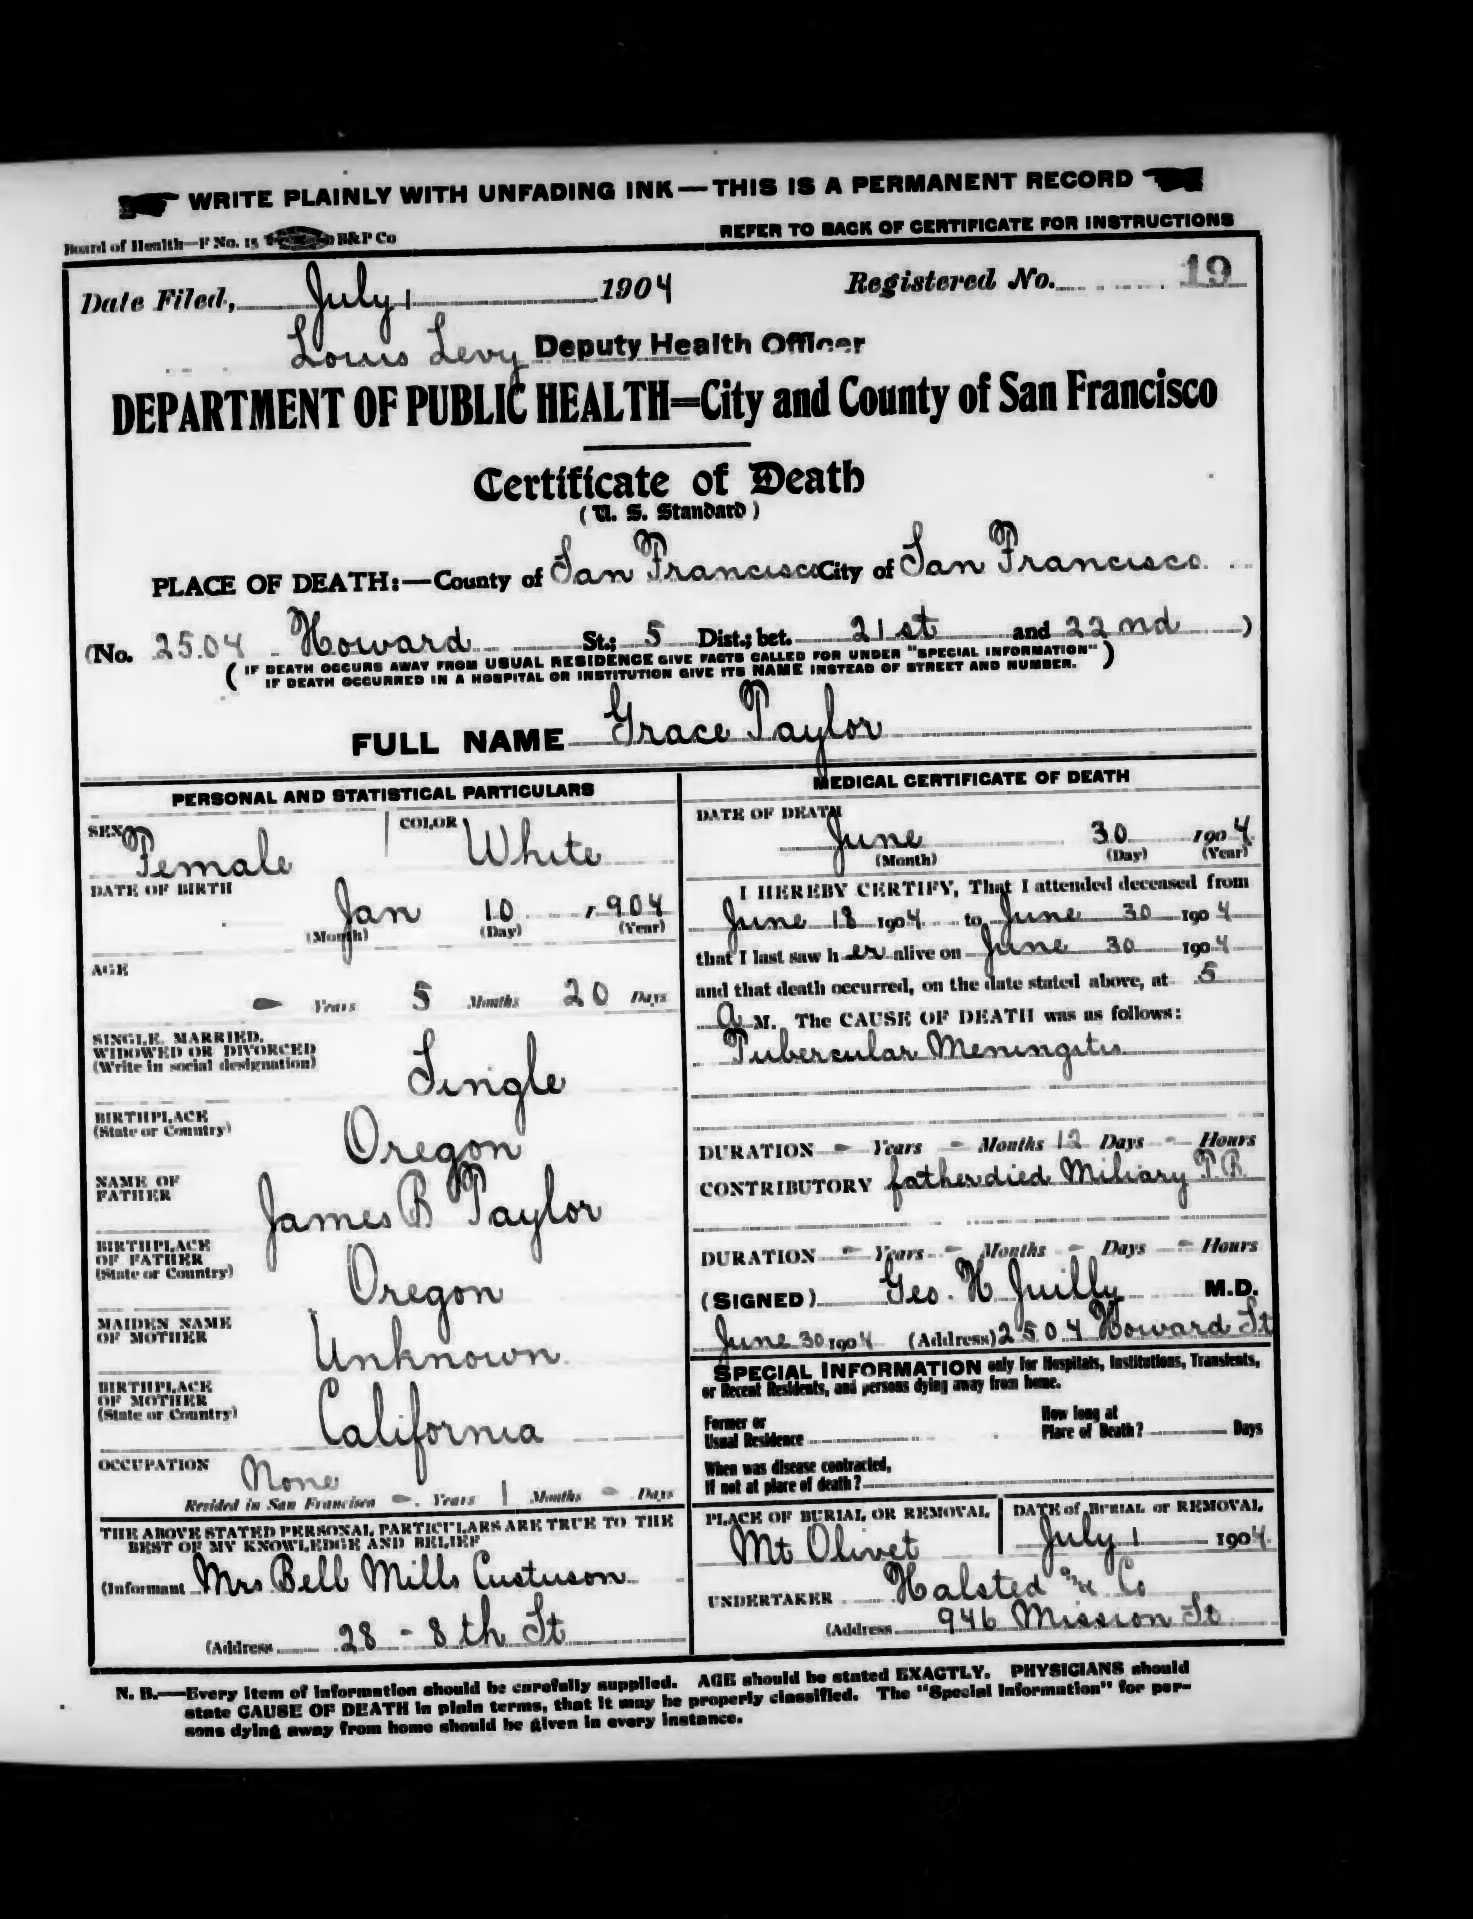 WRITE PLAINLY WITH UNFADING INK—THIS IS A PERMANENT RECORD
Board of Health—F No. 15 B&P Co
REFER TO BACK OF CERTIFICATE FOR INSTRUCTIONS
Date Filed, July 1 1904 Registered No. 19
Louis Levy Deputy Health Officer
DEPARTMENT OF PUBLIC HEALTH=City and County of San Francisco
Certificate of Death
(U. S. Standard)
PLACE OF DEATH:—County of San Francisco City of San Francisco
(No. 2504 Howard St.; 5 Dist.; bet. 21st and 22nd )
( IF DEATH OCCURS AWAY FROM USUAL RESIDENCE GIVE FACTS CALLED FOR UNDER "SPECIAL INFORMATION" )
IF DEATH OCCURRED IN A HOSPITAL OR INSTITUTION GIVE ITS NAME INSTEAD OF STREET AND NUMBER.
FULL NAME Grace Taylor
PERSONAL AND STATISTICAL PARTICULARS
SEX Female COLOR White
DATE OF BIRTH
Jan 10 , 904
(Month) (Day) (Year)
AGE
- Years 5 Months 20 Days
SINGLE, MARRIED,
WIDOWED OR DIVORCED
(Write in social designation)
Single
BIRTHPLACE
(State or Country)
Oregon
NAME OF
FATHER
James B Taylor
BIRTHPLACE
OF FATHER
(State or Country)
Oregon
MAIDEN NAME
OF MOTHER
Unknown
BIRTHPLACE
OF MOTHER
(State or Country)
California
OCCUPATION None
Resided in San Francisco - Years 1 Months - Days
THE ABOVE STATED PERSONAL PARTICULARS ARE TRUE TO THE
BEST OF MY KNOWLEDGE AND BELIEF
(Informant Mrs Bell Mills Custuson
(Address 28 - 8th St
MEDICAL CERTIFICATE OF DEATH
DATE OF DEATH
June 30 1904
(Month) (Day) (Year)
I HEREBY CERTIFY, That I attended deceased from
June 18 1904 to June 30 1904
that I last saw h er alive on June 30 1904
and that death occurred, on the date stated above, at 5
a M. The CAUSE OF DEATH was as follows:
Tubercular Meningitis
DURATION - Years - Months 12 Days - Hours
CONTRIBUTORY father died Miliary T B
DURATION - Years - Months - Days - Hours
(SIGNED) Geo. H Juilly M.D.
June 30 1904 (Address) 2504 Howard St
SPECIAL INFORMATION only for Hospitals, Institutions, Transients,
or Recent Residents, and persons dying away from home.
Former or
Usual Residence
How long at
Place of Death? Days
When was disease contracted,
If not at place of death?
PLACE OF BURIAL OR REMOVAL
Mt Olivet
DATE of BURIAL or REMOVAL
July 1 1904
UNDERTAKER Halsted & Co
(Address 946 Mission St
N. B.—Every item of information should be carefully supplied. AGE should be stated EXACTLY. PHYSICIANS should
state CAUSE OF DEATH in plain terms, that it may be properly classified. The "Special Information" for per-
sons dying away from home should be given in every instance.